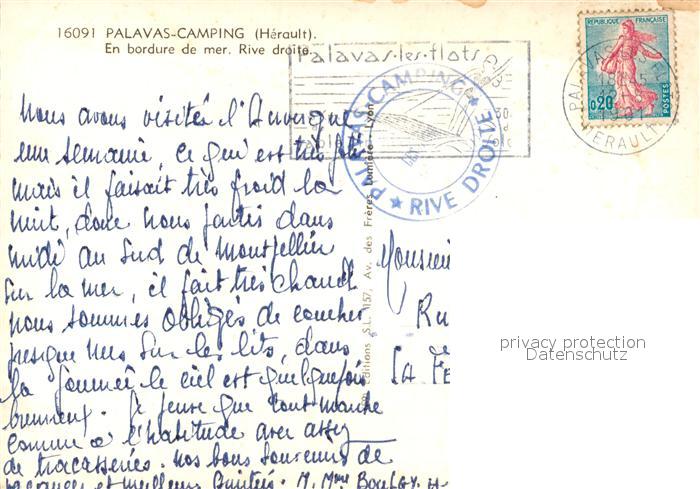 16091 PALAVAS-CAMPING (Hérault).
En bordure de mer. Rive droite.
Palavas-les-flots
REPUBLIQUE FRANÇAISE
0,20
POSTES
HERAULT
PALAVAS-CAMPING
RIVE DROITE
S.L. 1157, Av. des Frères Lumière - Lyon
Nous avons visités l'Auvergne
une semaine, ce qui est très
mais il faisait très froid la
nuit, donc nous partis dans
midi au Sud de Montpellier
sur la mer, il fait très chaud
nous sommes obligés de coucher
presque nus sur les lits, dans
la journée le ciel est quelquefois
brumeux. Je pense que tout marche
comme à l'habitude avec assez
de tracasseries. Nos bons souvenirs de
vacances et meilleures Amitiés. M. Mme
Monsieur
Ru
La Fe
privacy protection
Datenschutz